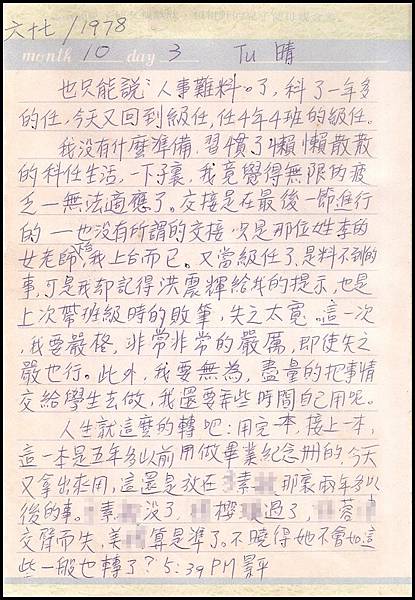 六十七/1978
month 10 day 3 Tu 晴
也只能說:人事難料。了,科了一年多
的任,今天又回到級任,任4年4班的級任。
我沒有什麼準備,習慣了懶懶散散
的科任生活,一下子裏,我竟覺得無限的疲
乏—無法適應了。交接是在最後一節進行
的—也沒有所謂的交接,只是那位姓李的
女老師陪我上台而已。又當級任了,是料不到的
事,可是我卻記得洪震輝給我的提示,也是
上次帶班級時的敗筆,失之太寬。這一次
,我要嚴格,非常非常的嚴厲,即使失之
嚴也行。此外,我要無為,盡量的把事情
交給學生去做,我還要弄些時間自己用呢。
人生就這麼的轉吧:用完一本,接上一本,
這一本是五年多以前用做畢業紀念冊的,今天
又拿出來用,這還是放在 素 那裏兩年多以
後的事。素 沒了, 櫻 過了, 蓉
交臂而失,美 算是準了。不曉得她不會如這
些一般也轉了?5:39 PM 景平